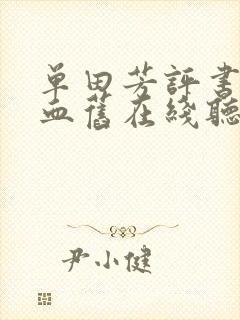 单田芳評書
血舊在綫聽
尹小健